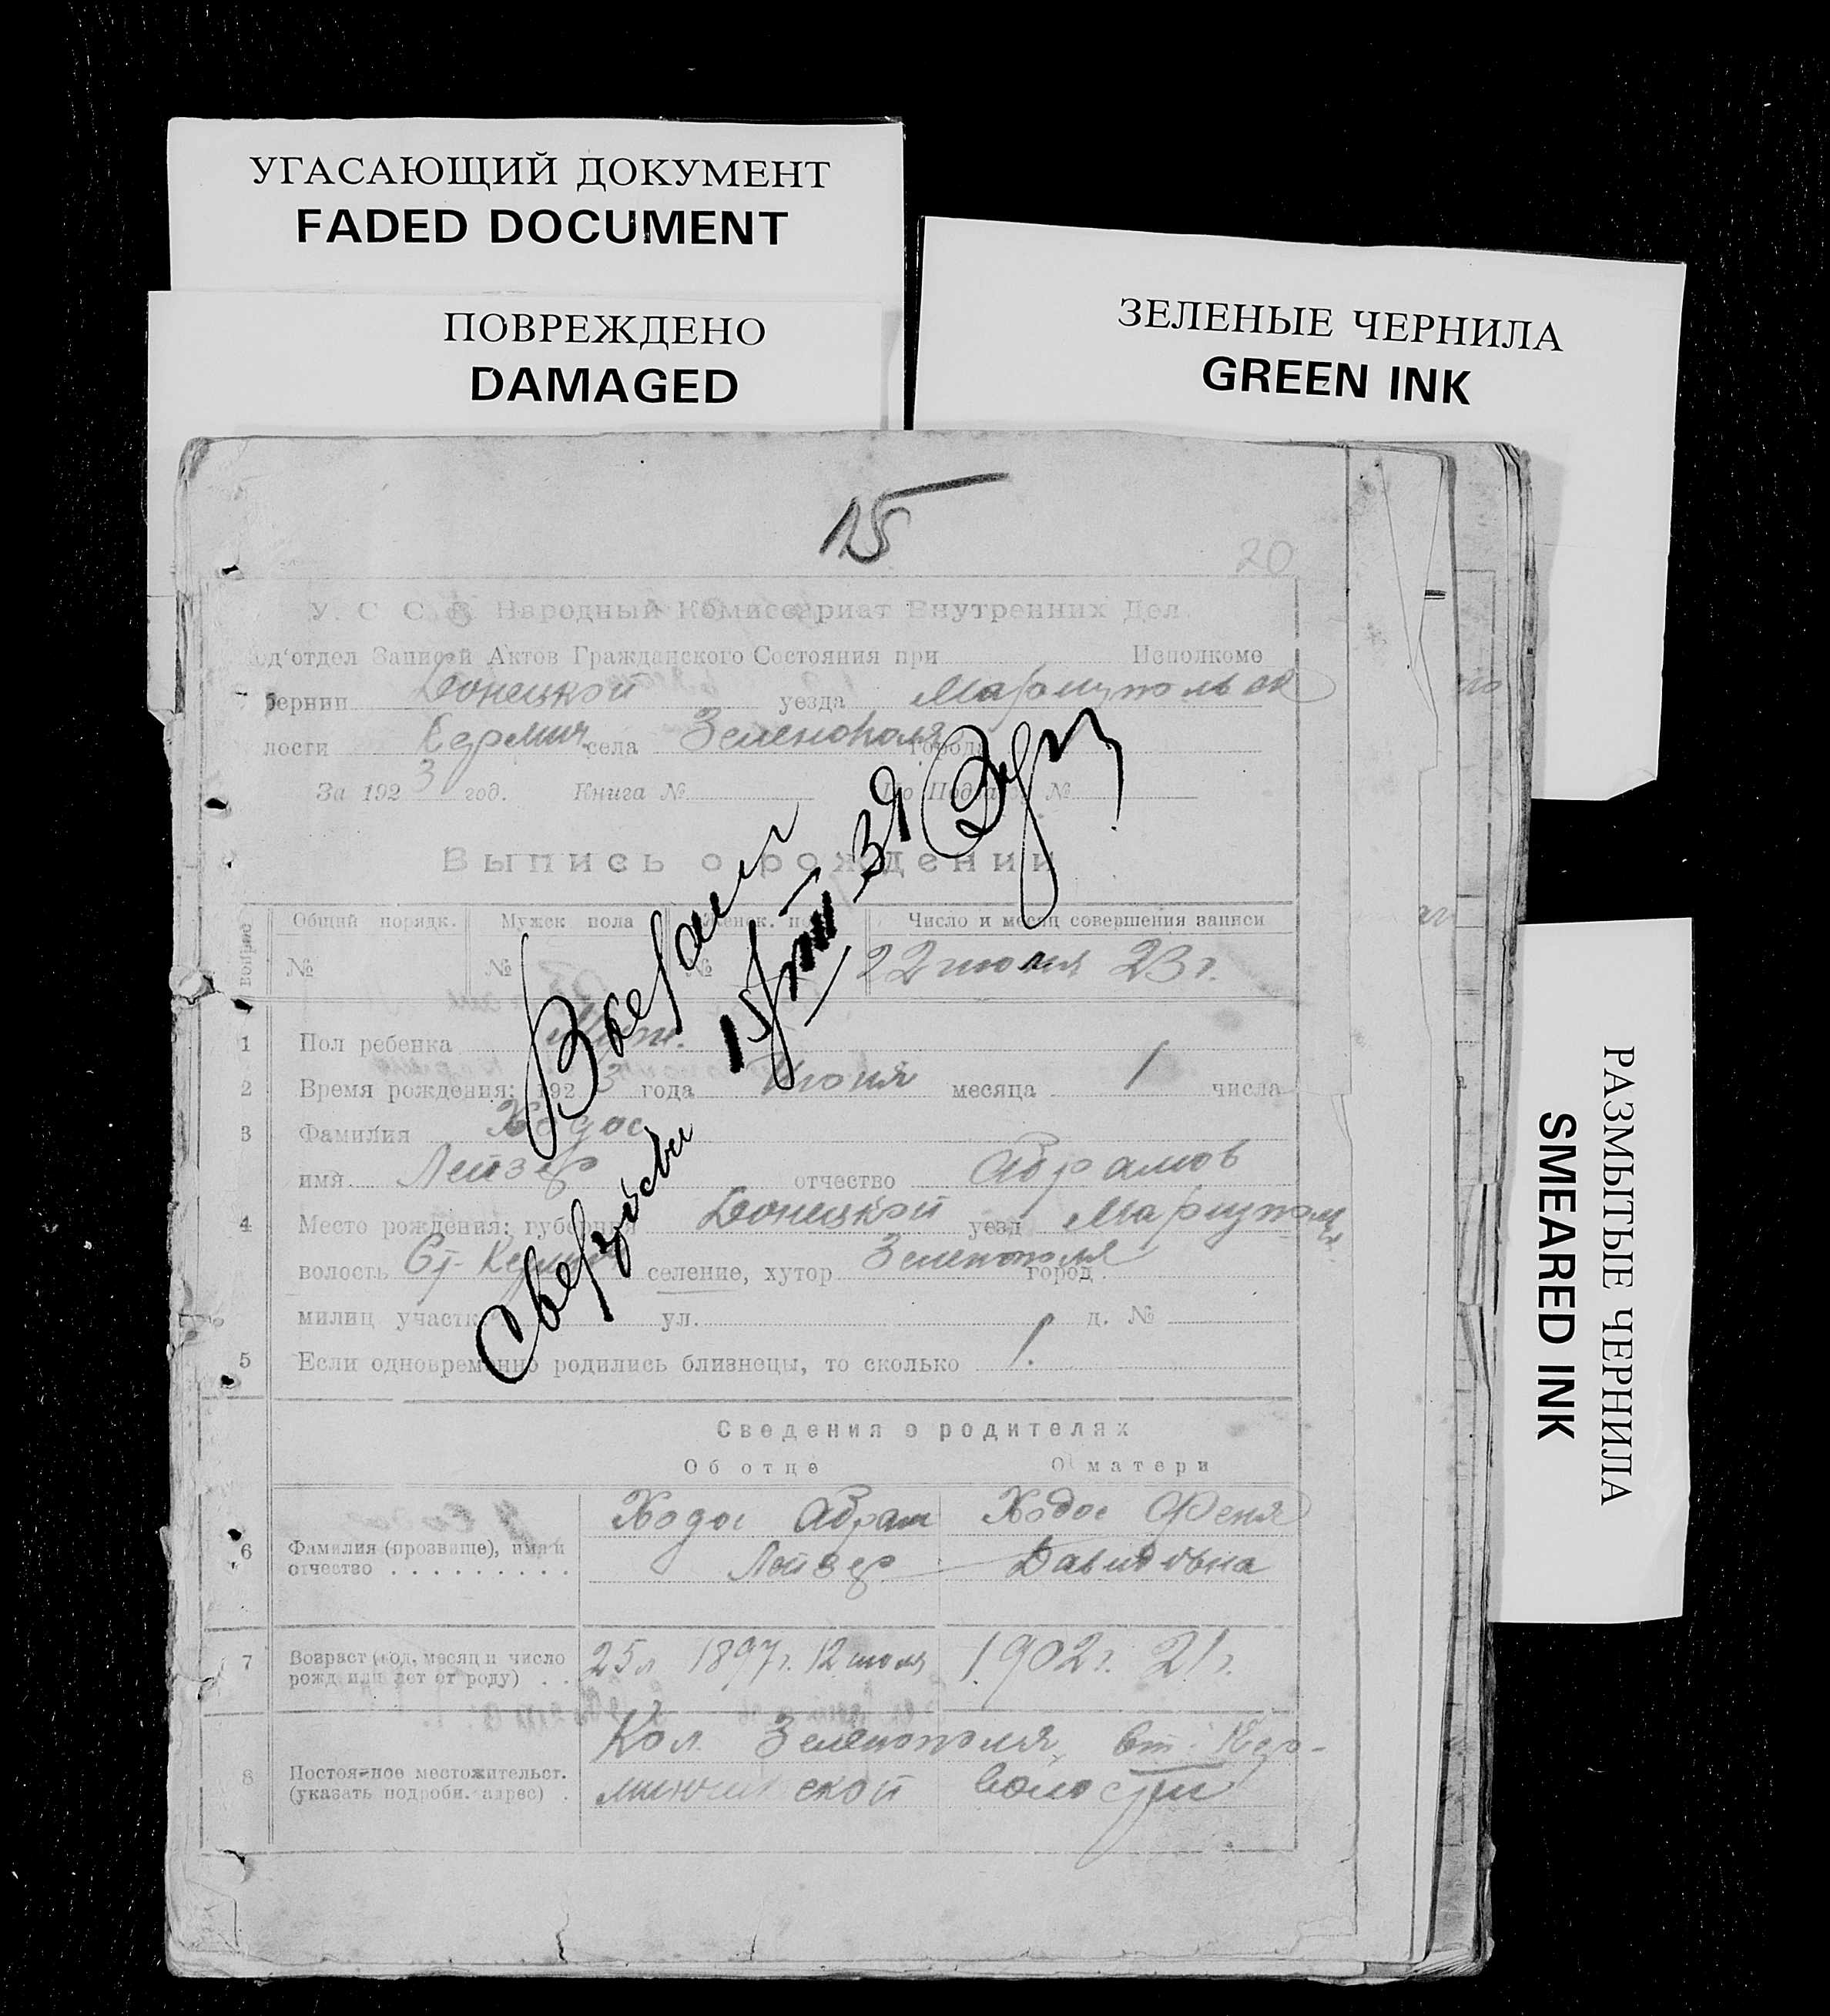 УГАСАЮЩИЙ ДОКУМЕНТ
FADED DOCUMENT
ПОВРЕЖДЕНО
DAMAGED
ЗЕЛЕНЫЕ ЧЕРНИЛА
GREEN INK
15
20
У. С. С. Р. Народный Комиссариат Внутренних Дел.
од'отдел Записей Актов Гражданского Состояния при Исполкоме
бернии Донецкой уезда Мариупольск
лости Кермич села Зеленополя города
За 1923 год. Книга № По Подра №
Выпись о рождении
Вопрос
Общий порядк. Мужск пола Женск. по Число и месяц совершения записи
№ № № 22 июля 23 г.
1 Пол ребенка Муж.
2 Время рождения: 1923 года Июня месяца 1 числа
3 Фамилия Ходос
имя Лейзер отчество Абрамов
4 Место рождения: губерния Донецкой уезд Мариупол
волость Ст. селение, хутор Зеленополя город
милиц участк ул. д. №
5 Если одновременно родились близнецы, то сколько 1.
Сведения о родителях
Об отце О матери
6 Фамилия (прозвище), имя и отчество Ходос Абрам Ходос Феня
Лейзер Давидовна
7 Возраст (год, месяц и число рожд или лет от роду) 25 л 1897 г. 12 июля 1902 г. 21 г.
8 Постоянное местожительст. (указать подробн. адрес) Кол. Зеленополя, Ст. Кер-
минчикской волости
15/III-39
РАЗМЫТЫЕ ЧЕРНИЛА
SMEARED INK